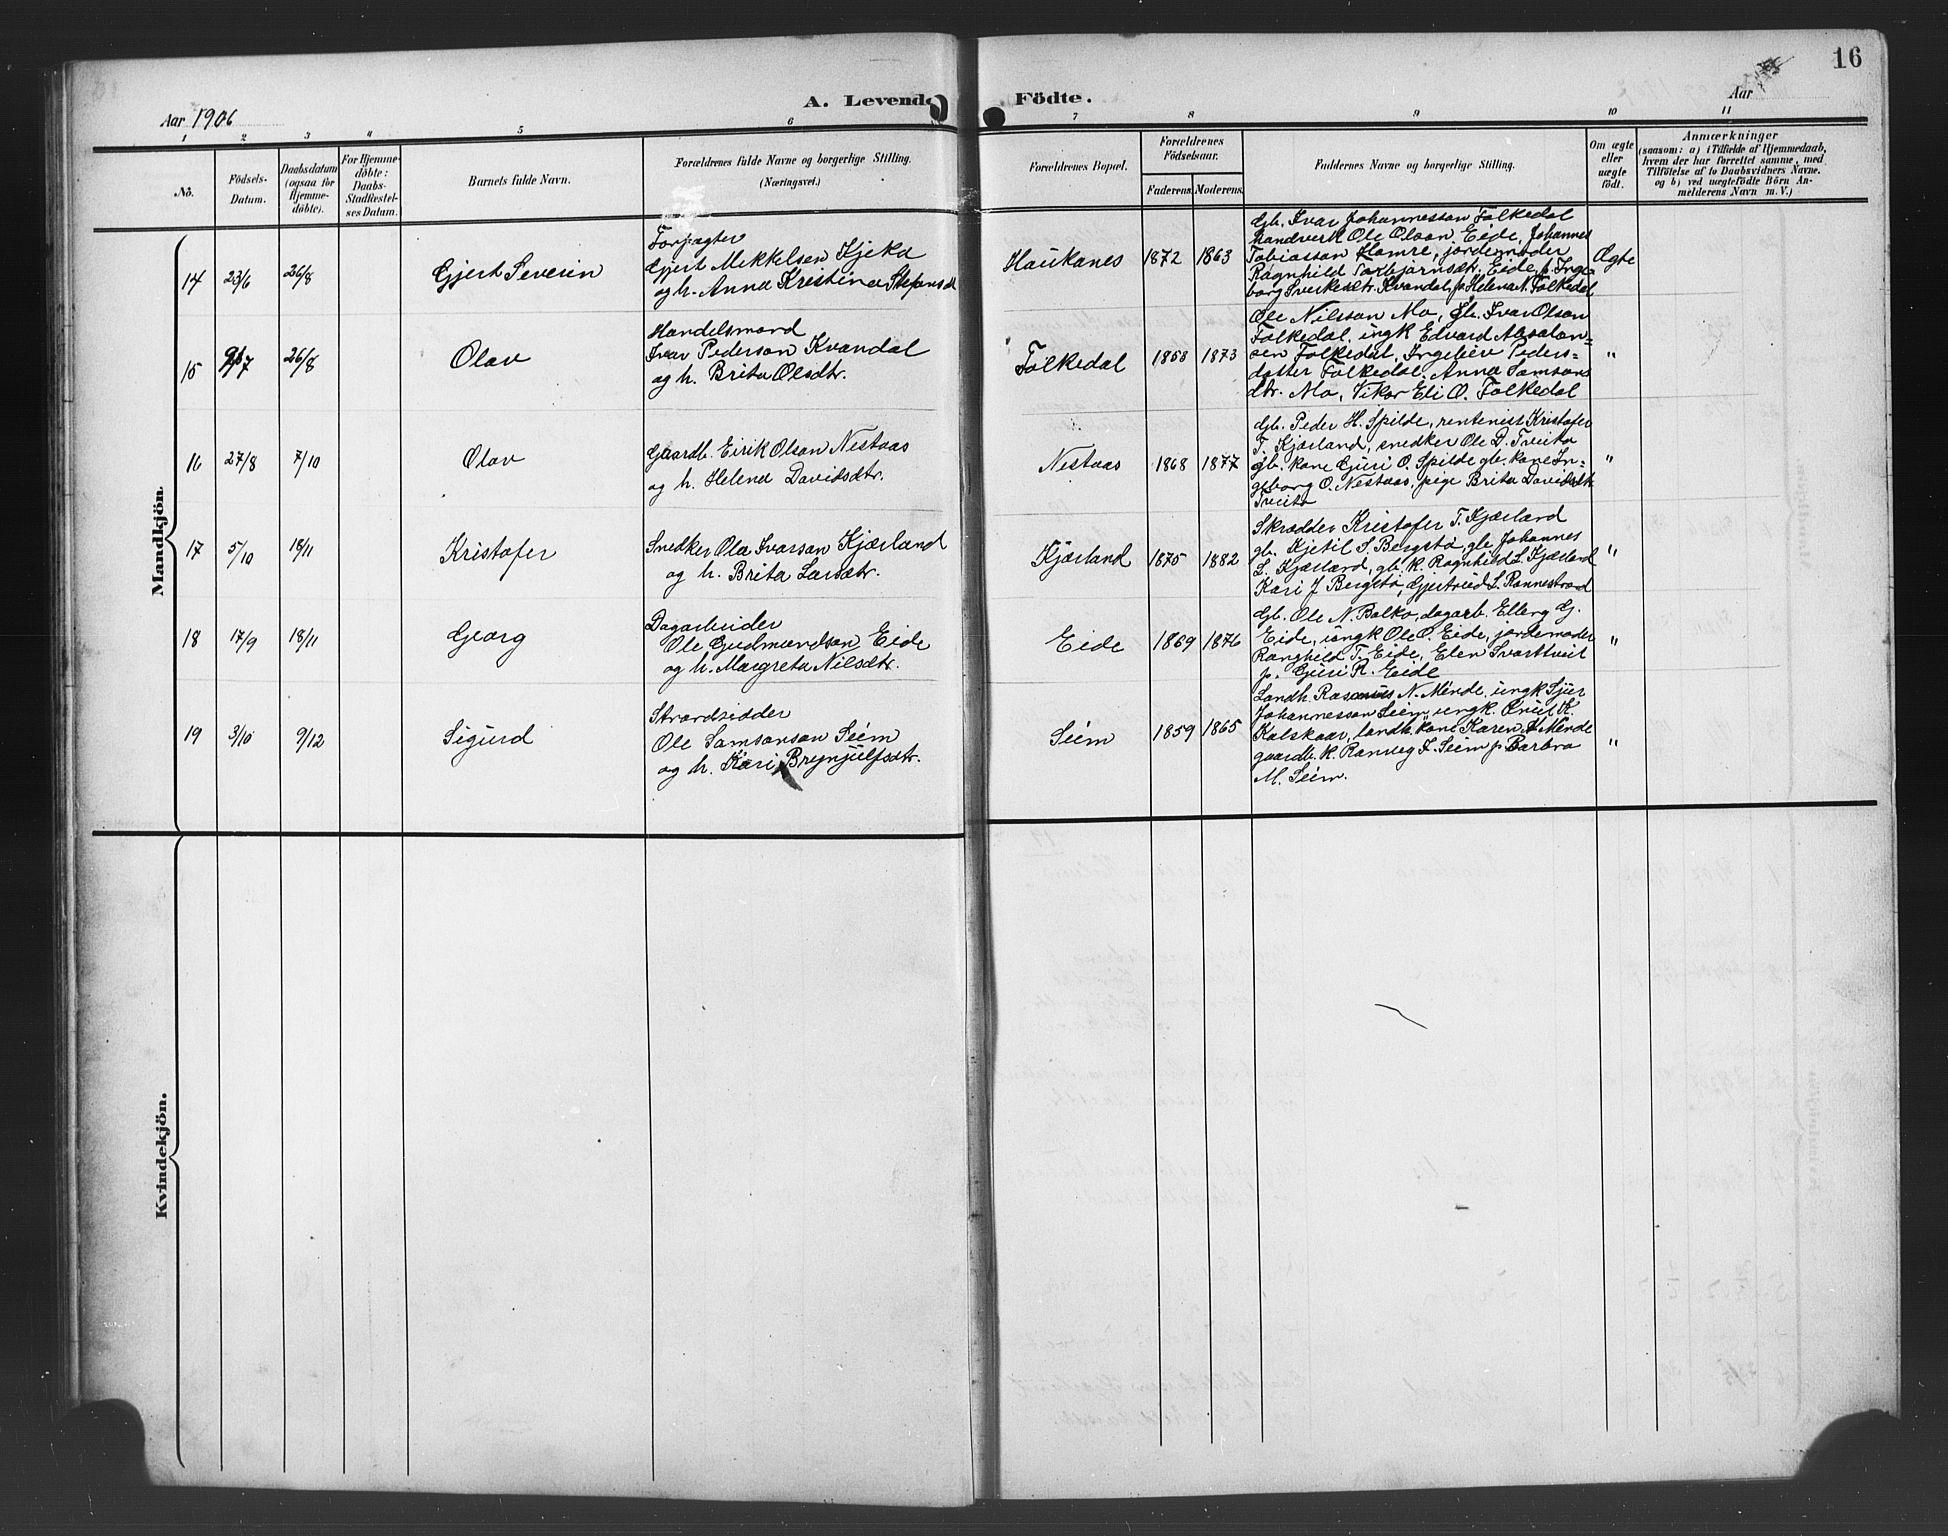 16
A. Levende Födte.
Aar 1906
Aar
1 2 3 4 5 6 7 8 9 10 11
No.
Födsels-
Datum.
Daabsdatum
(ogsaa for
Hjemme-
döbte).
For Hjemme-
döbte:
Daabs-
Stadfæstel-
ses Datum.
Barnets fulde Navn.
Forældrenes fulde Navne og borgerlige Stilling.
(Næringsvei.)
Forældrenes Bopæl.
Forældrenes
Födselsaar.
Faderens. Moderens.
Faddernes Navne og borgerlige Stilling.
Om ægte
eller
uægte
født.
Anmærkninger
(saasom: a) i Tilfælde af Hjemmedaab,
hvem der har forrettet samme, med
Tilföielse af to Daabsvidners Navne.
og b) ved uægtefödte Börn An-
melderens Navn m. V.)
Mandkjön.
14 23/6 26/8 Gjert Severin
Forpagter
Gjert Mikkelsen Kjeka
og h. Anna Kristina Stefansdt
Haukanes 1872 1863
Gb. Ivar Johannesson Folkedal
handverk Ole Olson Eide, Johannes
Tobiasson Hamre, jordemoder
Ragnhild Torbjørnsdtr. Eide, p. Inge-
borg Sverkesdtr. Kvandal, p. Helena N. Folkedal
Ægte
15 /7 26/8 Olav
Handelsmand
Ivar Pederson Kvandal
og h. Brita Olsdtr.
Folkedal 1858 1873
Ole Nilsson Mo, Gb. Ivar Olson
Folkedal, ungk Edvard Absalon-
sen Folkedal, Ingebjør Peders-
datter Folkedal, Anna Samsons
dtr. Mo, Vikør Eli O. Folkedal
"
16 27/8 7/10 Olav
Gaardb. Eirik Olson Nestaas
og h. Helena Davidsdtr.
Nestaas 1868 1877
Gb. Peder H. Spilde, rentenist Kristofer
T. Kjærland, snedker Ole D. Tveito
gb. kone Guri O. Spilde gb. kone In-
geborg O. Nestaas, pige Brita Davidsdtr
Tveito
"
17 5/10 18/11 Kristofer
Snedker Ola Ivarson Kjærland
og h. Brita Larsdtr.
Kjærland 1875 1882
Skrædder Kristofer T. Kjærland
gb. Kjetil S. Bergstø, gb. Johannes
L. Kjærland, gb. k. Ragnhild L. Kjærland
Kari J Bergstø, Gjertrud L. Rønnestrand
"
18 17/9 18/11 Georg
Dagarbeider
Ole Gudmundson Eide
og h. Margreta Nilsdtr.
Eide 1869 1876
Gb. Ole N. Bolko, dagarb. Elling G.
Eide, ungk Ole O. Eide, jordemoder
Ranghild T. Eide, Elen Svarttveit
p. Guri R. Eide
"
19 3/10 9/12 Sigurd
Strandsidder
Ole Samsonson Seim
og h. Kari Brynjulfsdtr.
Seim 1859 1865
Landh. Rasmus N. Minde, ungk Sjur
Johannesson Seim, ungk. Knut K.
Kolskaar, landh. kone Karen Minde
gaardb. k. Ranveg J. Seim p. Barbro
M. Seim.
"
Kvindekjön.